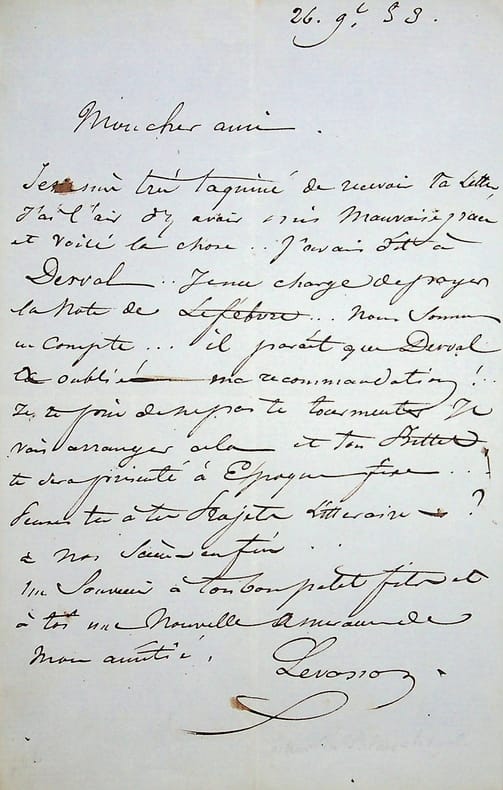 26. 9bre 53.
Mon cher ami.
Je suis très taquiné de recevoir ta lettre
J'ai l'air d'y avoir mis mauvaise grace
et voici la chose .. J'avais dit à
Derval .. Je me charge de payer
la note de Lefébvre ... nous sommes
en compte ... il parait que Derval
a oublié ma recommandation !..
Je te prie de ne pas te tourmenter Je
vais arranger cela et ton Billet
te sera présenté à Epoque fixe ...
Penses tu à tes Projets Littéraires - ?
à nos enfin ..
un Souvenir à ton bon petit fils et
à toi une nouvelle assurance de
mon amitié.
Levassor.